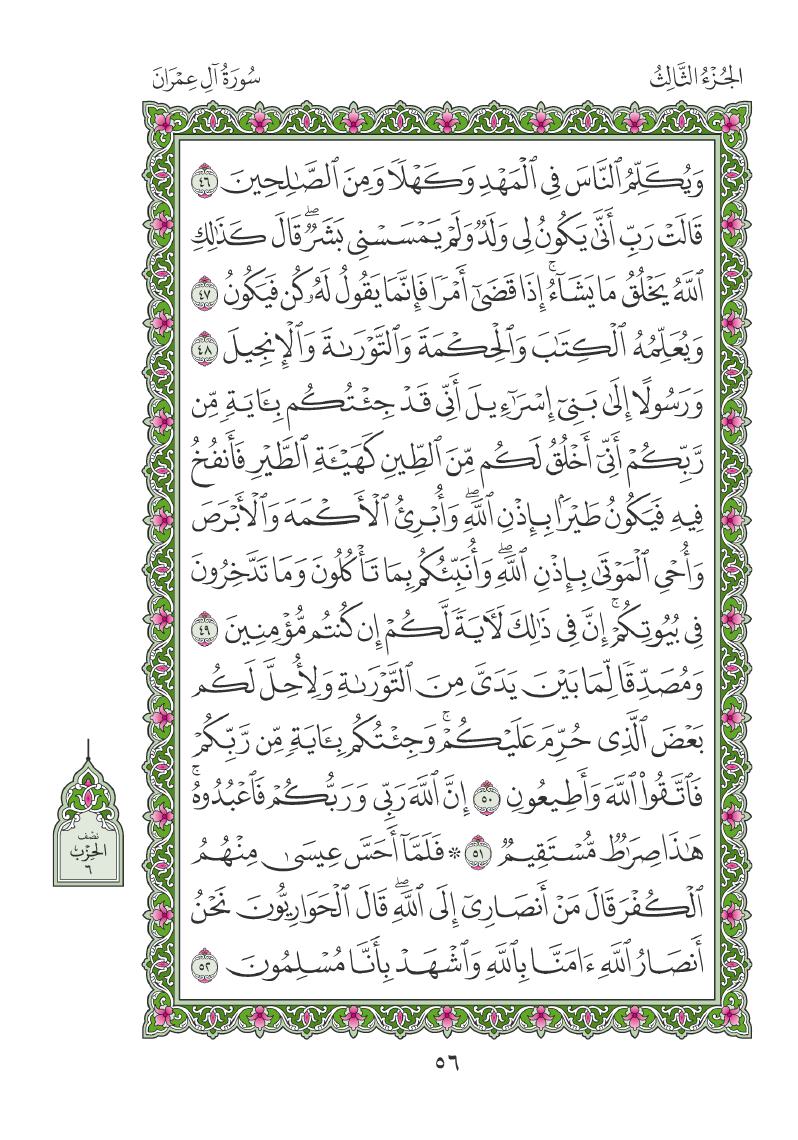 الجُزْءُ الثَّالِثُ
سُورَةُ آلِ عِمْرَانَ
وَيُكَلِّمُ ٱلنَّاسَ فِى ٱلْمَهْدِ وَكَهْلًا وَمِنَ ٱلصَّٰلِحِينَ ٤٦
قَالَتْ رَبِّ أَنَّىٰ يَكُونُ لِى وَلَدٌ وَلَمْ يَمْسَسْنِى بَشَرٌ ۖ قَالَ كَذَٰلِكِ
ٱللَّهُ يَخْلُقُ مَا يَشَآءُ ۚ إِذَا قَضَىٰٓ أَمْرًا فَإِنَّمَا يَقُولُ لَهُۥ كُن فَيَكُونُ ٤٧
وَيُعَلِّمُهُ ٱلْكِتَٰبَ وَٱلْحِكْمَةَ وَٱلتَّوْرَىٰةَ وَٱلْإِنجِيلَ ٤٨
وَرَسُولًا إِلَىٰ بَنِىٓ إِسْرَٰٓءِيلَ أَنِّى قَدْ جِئْتُكُم بِـَٔايَةٍ مِّن
رَّبِّكُمْ أَنِّىٓ أَخْلُقُ لَكُم مِّنَ ٱلطِّينِ كَهَيْـَٔةِ ٱلطَّيْرِ فَأَنفُخُ
فِيهِ فَيَكُونُ طَيْرًۢا بِإِذْنِ ٱللَّهِ ۖ وَأُبْرِئُ ٱلْأَكْمَهَ وَٱلْأَبْرَصَ
وَأُحْىِ ٱلْمَوْتَىٰ بِإِذْنِ ٱللَّهِ ۖ وَأُنَبِّئُكُم بِمَا تَأْكُلُونَ وَمَا تَدَّخِرُونَ
فِى بُيُوتِكُمْ ۚ إِنَّ فِى ذَٰلِكَ لَـَٔايَةً لَّكُمْ إِن كُنتُم مُّؤْمِنِينَ ٤٩
وَمُصَدِّقًا لِّمَا بَيْنَ يَدَىَّ مِنَ ٱلتَّوْرَىٰةِ وَلِأُحِلَّ لَكُم
بَعْضَ ٱلَّذِى حُرِّمَ عَلَيْكُمْ ۚ وَجِئْتُكُم بِـَٔايَةٍ مِّن رَّبِّكُمْ
فَٱتَّقُوا۟ ٱللَّهَ وَأَطِيعُونِ ٥٠ إِنَّ ٱللَّهَ رَبِّى وَرَبُّكُمْ فَٱعْبُدُوهُ ۚ
هَٰذَا صِرَٰطٌ مُّسْتَقِيمٌ ٥١ ۞ فَلَمَّآ أَحَسَّ عِيسَىٰ مِنْهُمُ
ٱلْكُفْرَ قَالَ مَنْ أَنصَارِىٓ إِلَى ٱللَّهِ ۖ قَالَ ٱلْحَوَارِيُّونَ نَحْنُ
أَنصَارُ ٱللَّهِ ءَامَنَّا بِٱللَّهِ وَٱشْهَدْ بِأَنَّا مُسْلِمُونَ ٥٢
نصف
الحزب
٦
٥٦